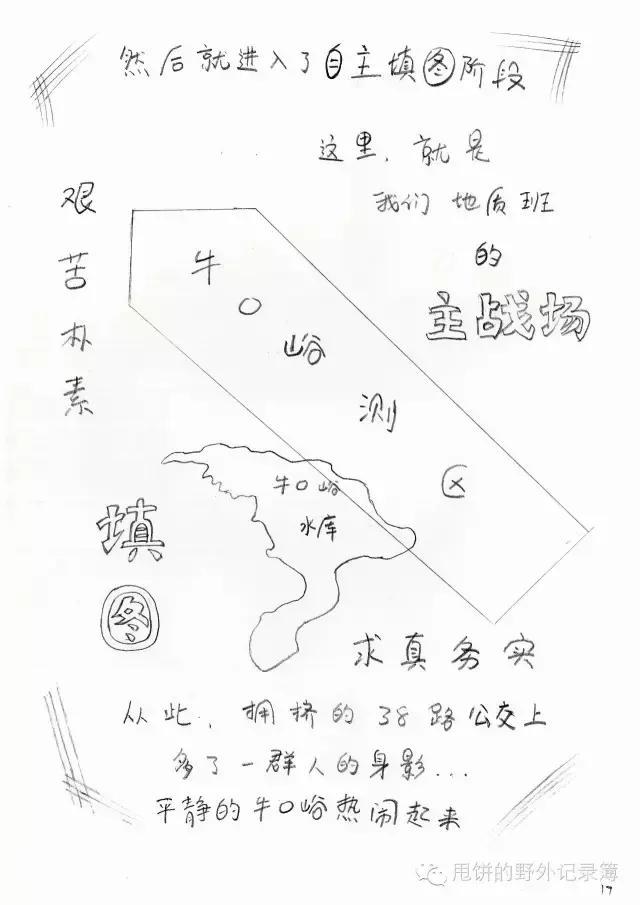 然后就进入了自主填图阶段
这里，就是
我们地质班
的
主战场
艰苦朴素
牛口峪测区
牛口峪
水库
填图
求真务实
从此，拥挤的38路公交上
多了一群人的身影...
平静的牛口峪热闹起来
甩饼的野外记录簿
17